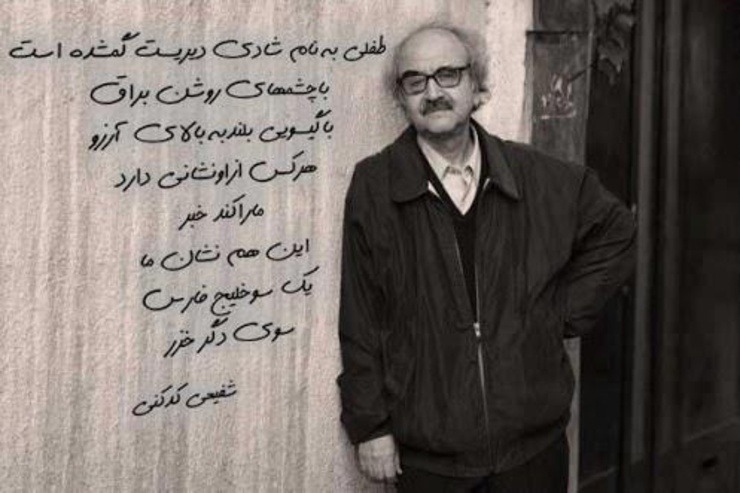 طفلی به نام شادی دیریست گمشده است
با چشمهای روشن براق
با گیسویی بلند به بالای آرزو
هرکس از او نشانی دارد
ما را کند خبر
این هم نشان ما
یک سو خلیج فارس
سوی دگر خزر
شفیعی کدکنی